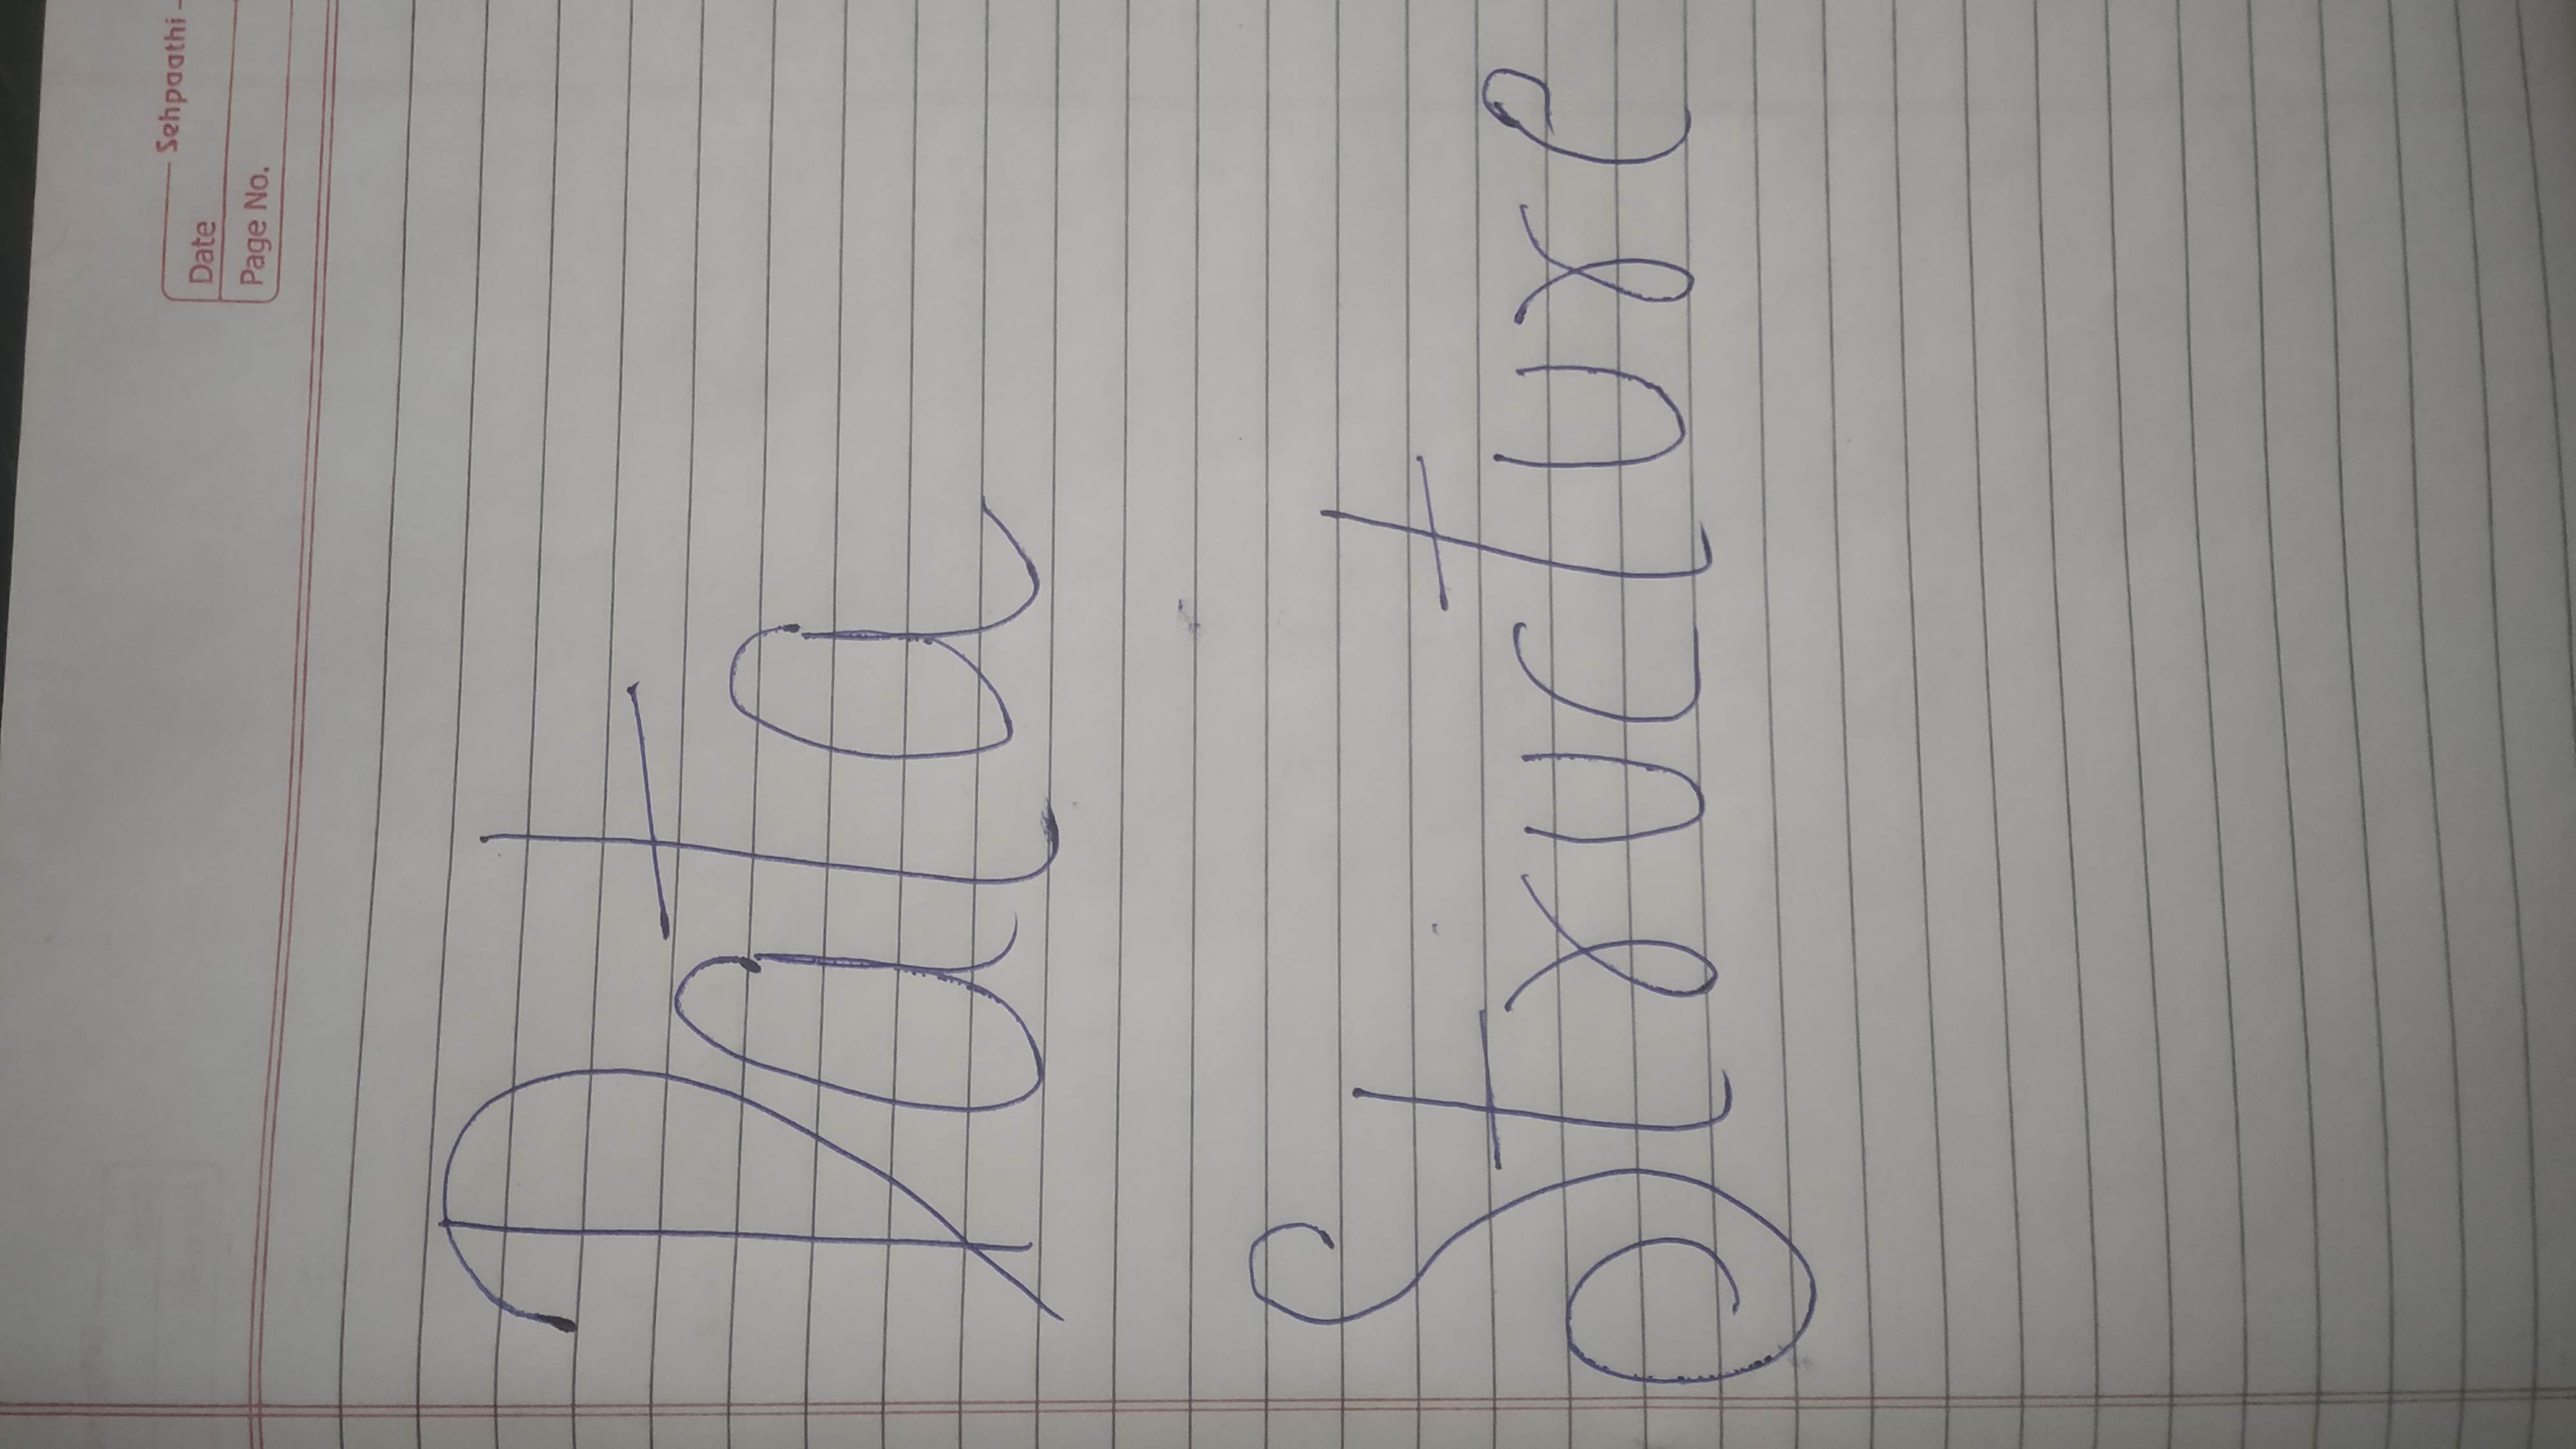 Sehpaathi
Date
Page No.
Data
Structure